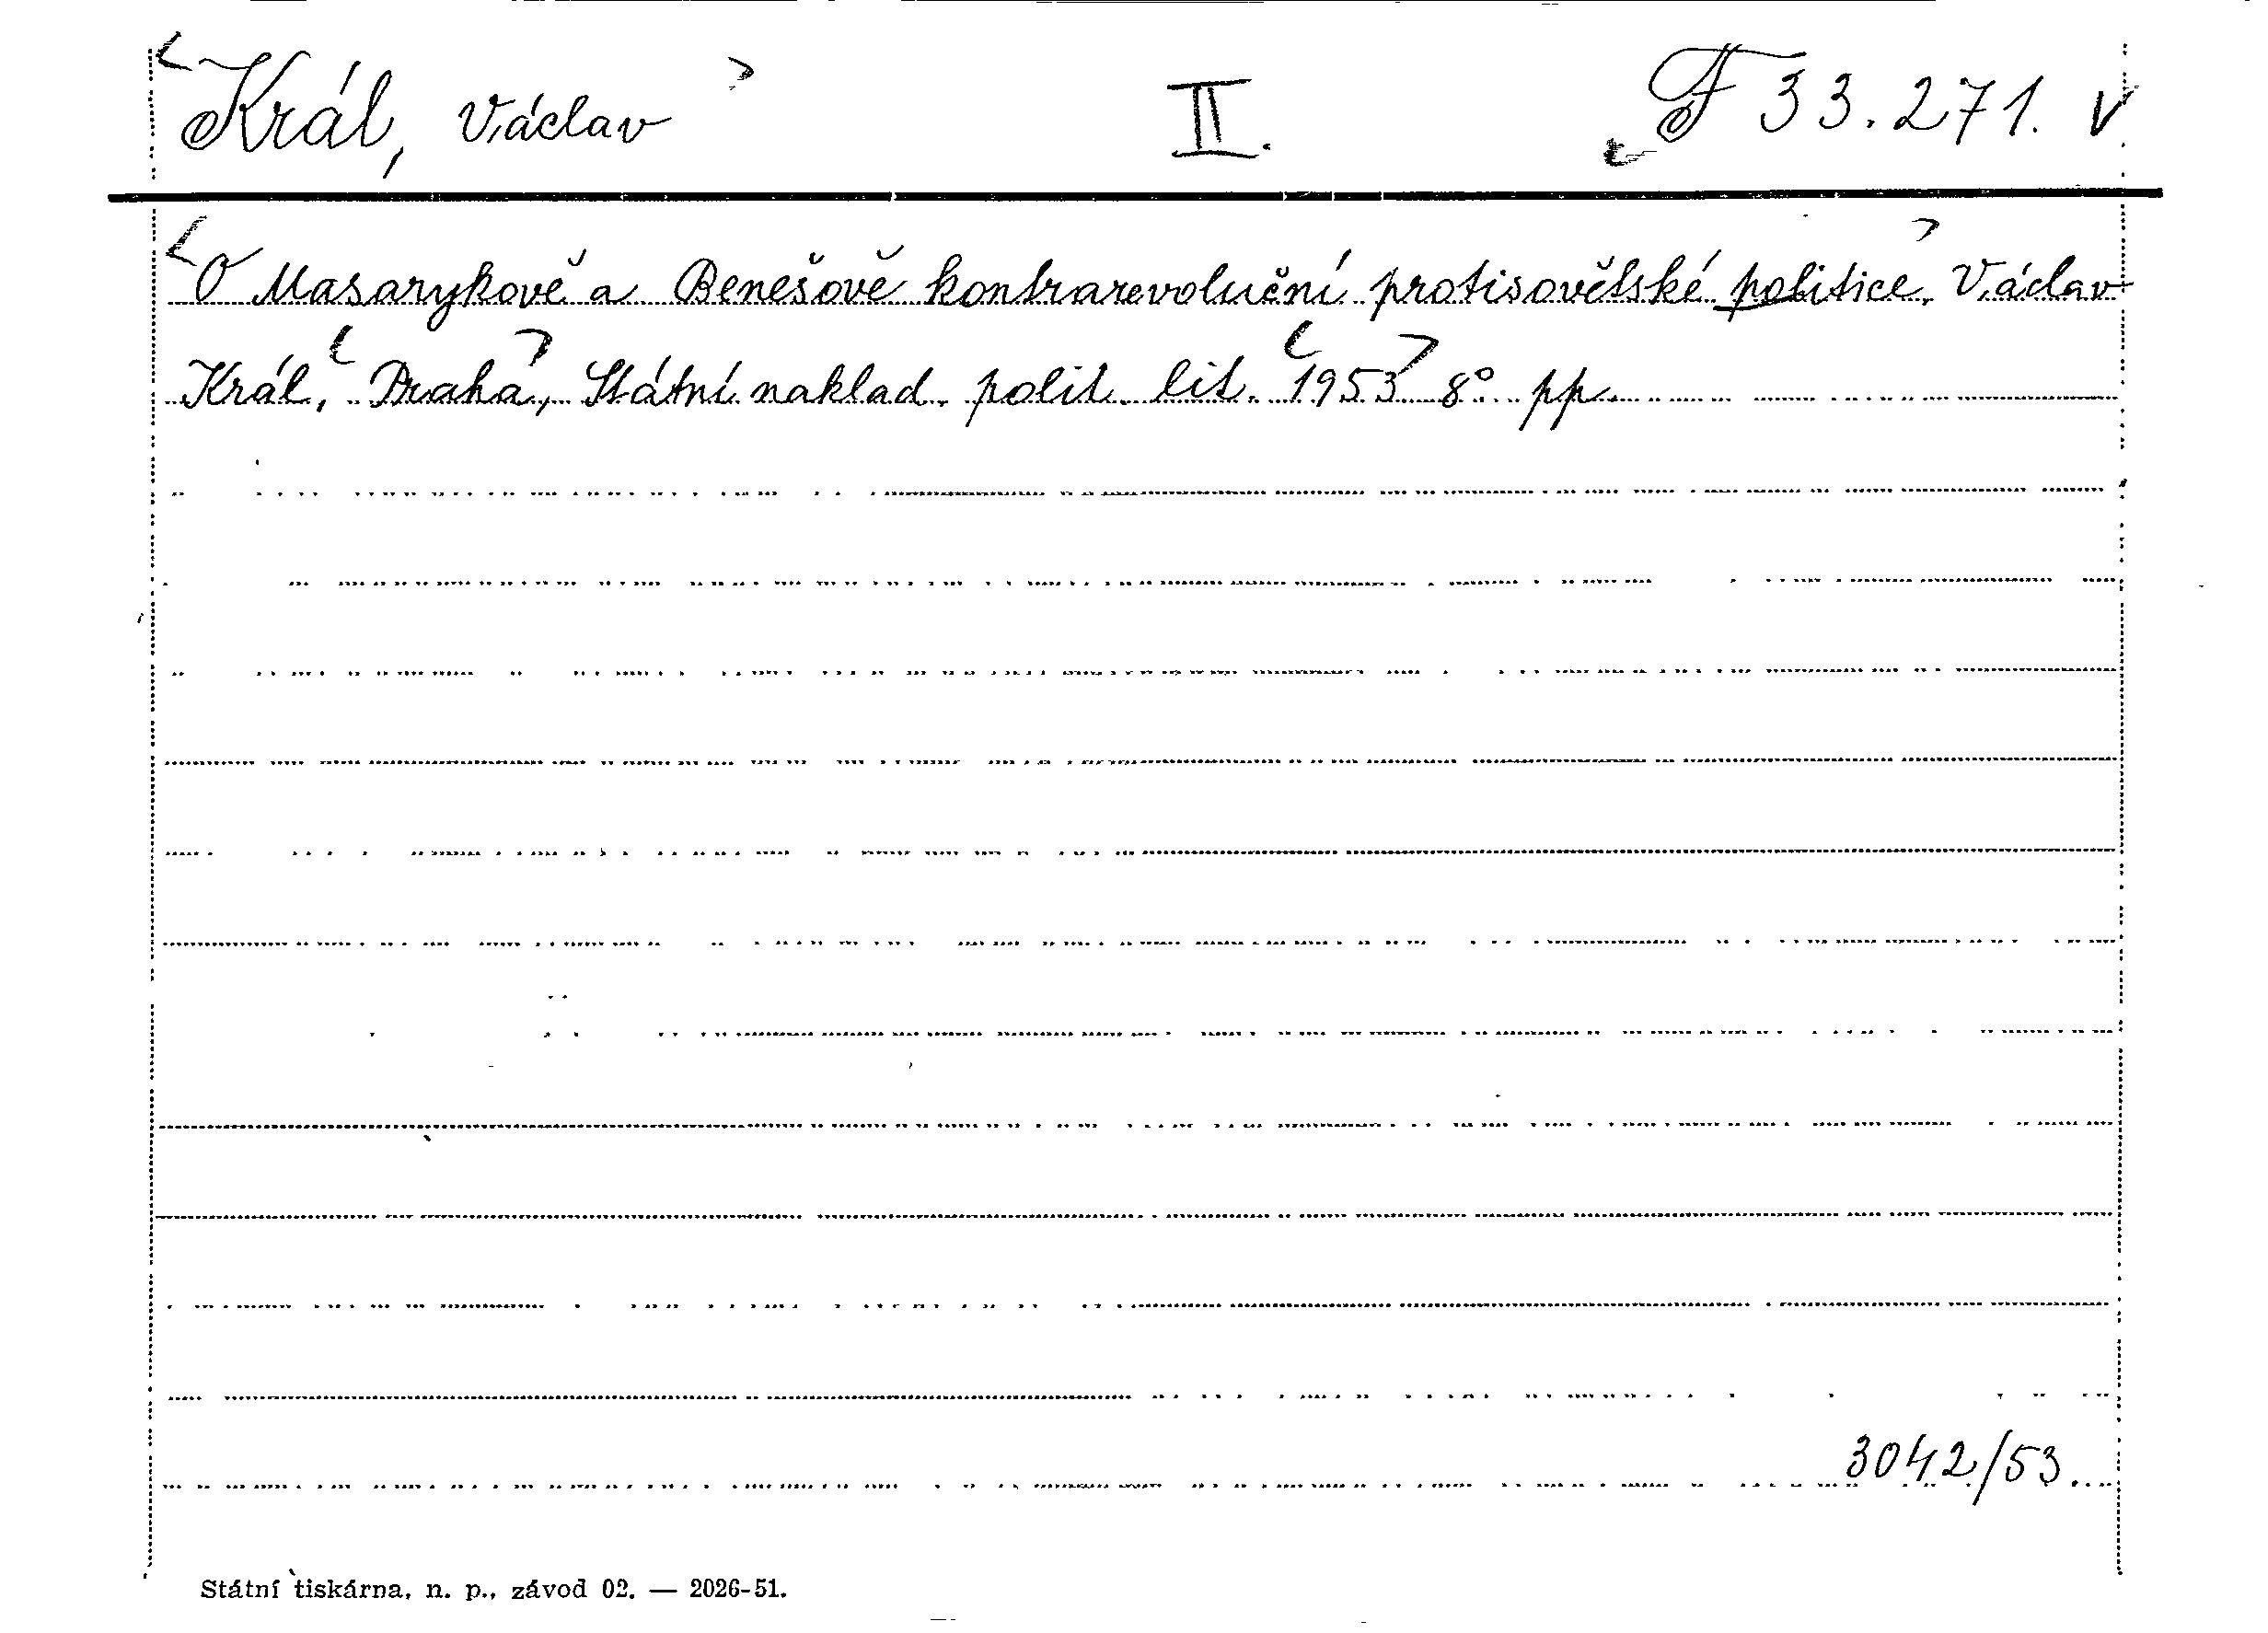 Král, Václav II. F 33.271. V
O Masarykově a Benešově kontrarevoluční protisovětské politice, Václav
Král, Praha, Státní naklad. polit. lit. 1953 8° pp.
3042/53.
Státní tiskárna, n. p., závod 02. — 2026-51.